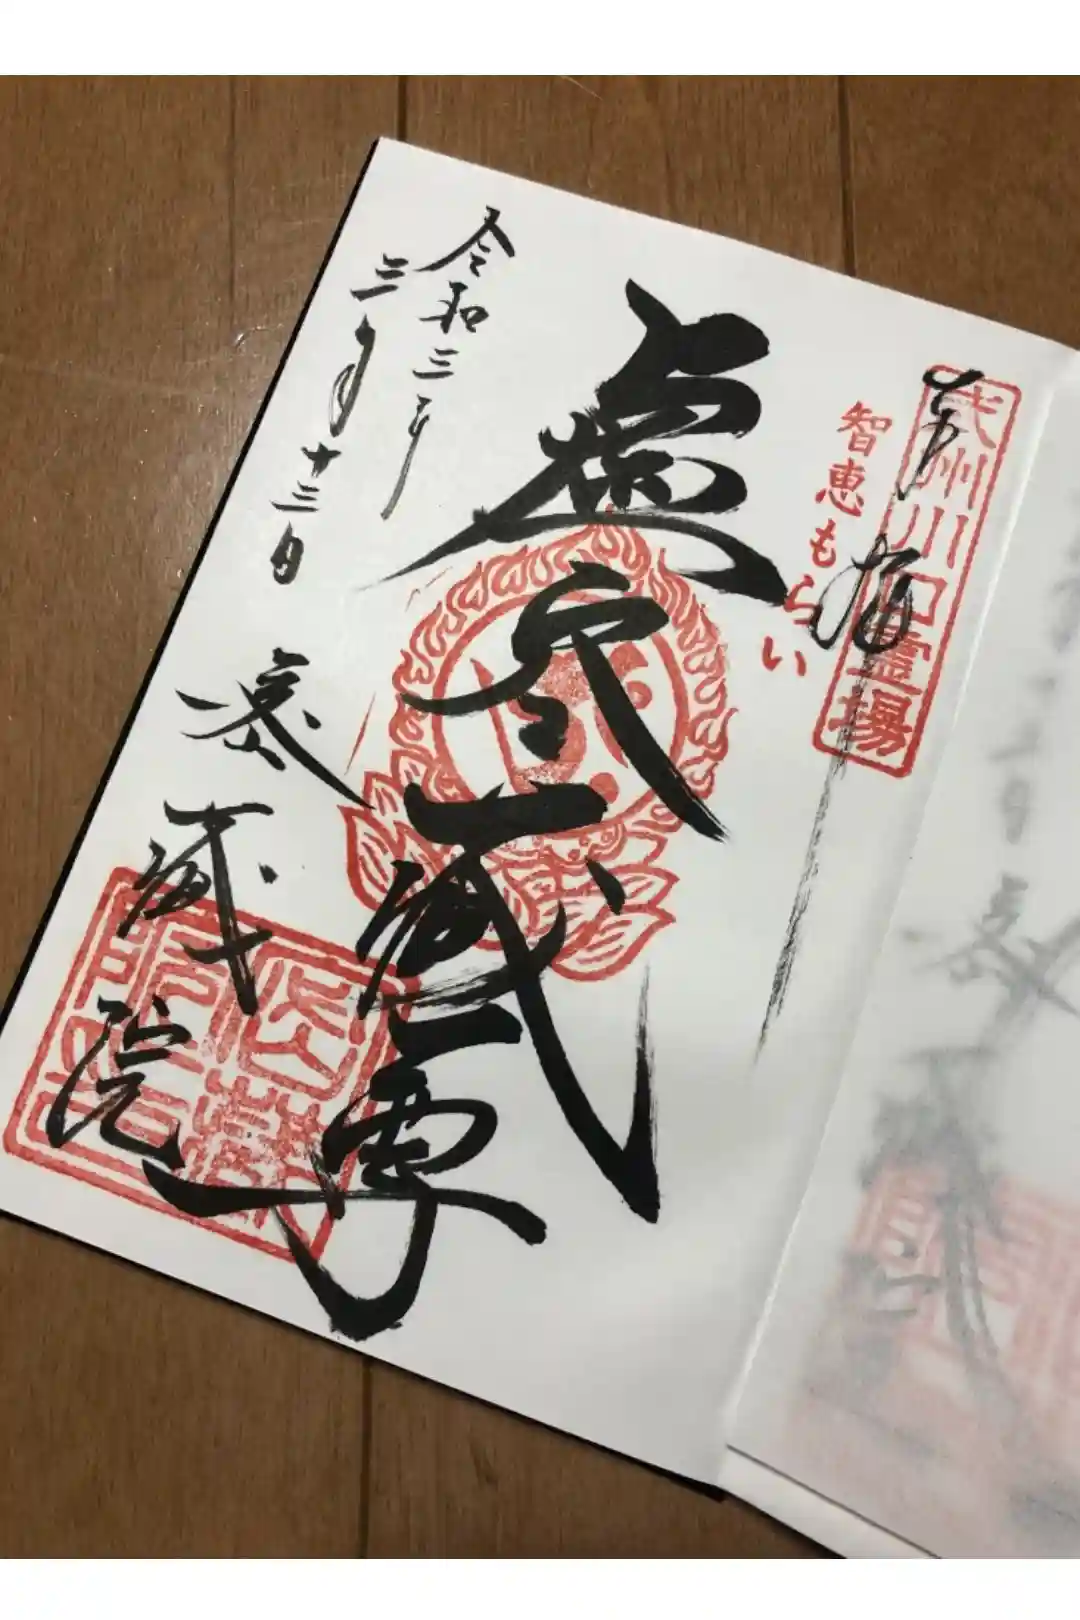 武州川口霊場
奉拝
智恵もらい
虚空蔵尊
令和三年
三月十三日